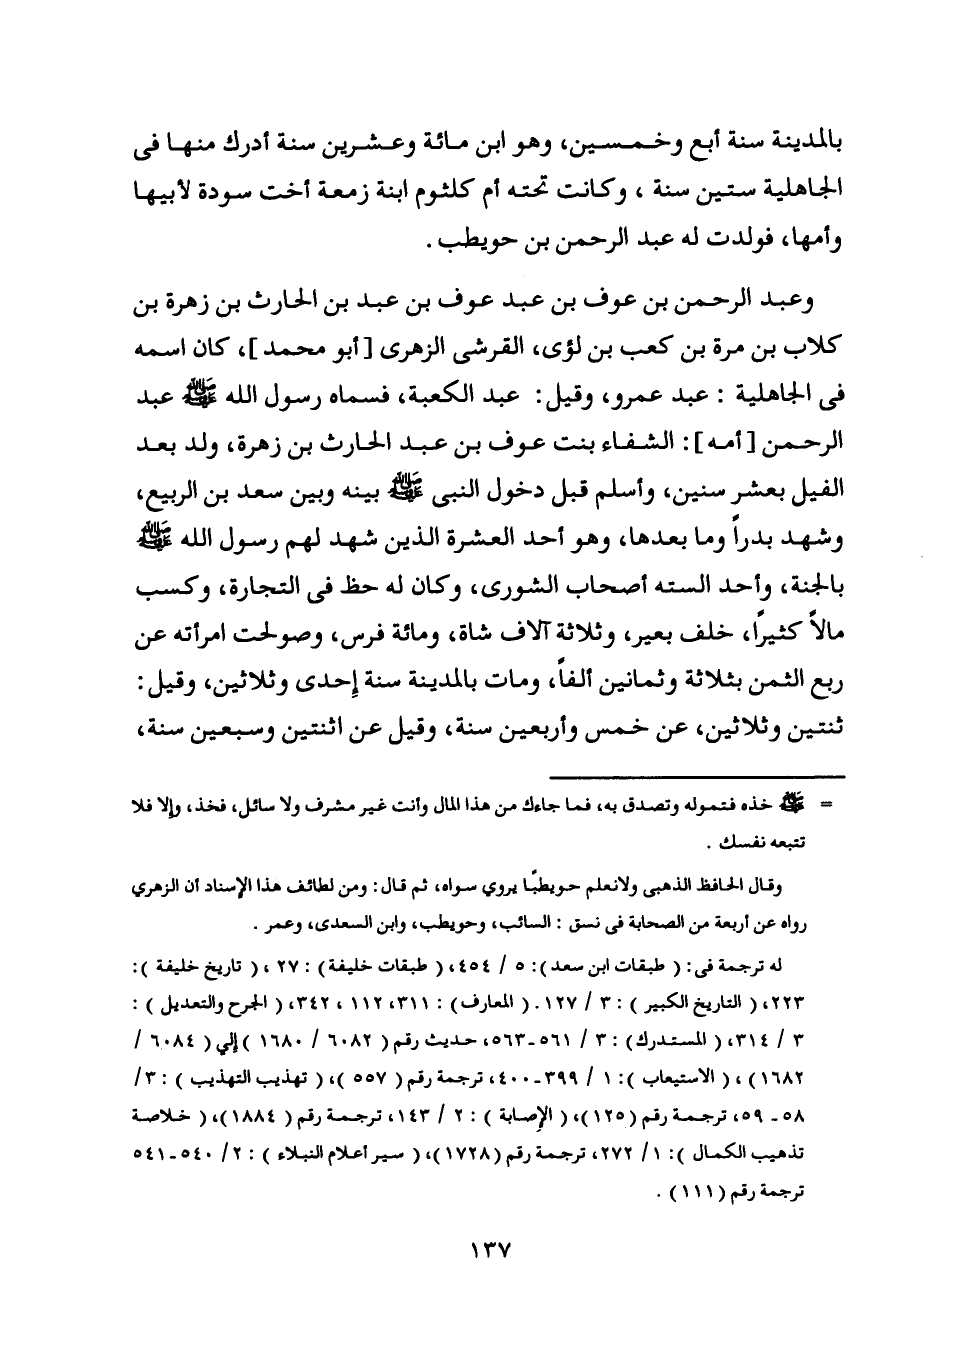 بالمدينة سنة أبع وخمسين، وهو ابن مائة وعشرين سنة أدرك منها فى
الجاهلية ستين سنة ، وكانت تحته أم كلثوم ابنة زمعة أخت سودة لأبيها
وأمها، فولدت له عبد الرحمن بن حويطب .
وعبد الرحمن بن عوف بن عبد عوف بن عبد بن الحارث بن زهرة بن
كلاب بن مرة بن كعب بن لؤى، القرشى الزهرى [أبو محمد]، كان اسمه
فى الجاهلية : عبد عمرو، وقيل: عبد الكعبة، فسماه رسول الله ﷺ عبد
الرحمن [أمه]: الشفاء بنت عوف بن عبد الحارث بن زهرة، ولد بعد
الفيل بعشر سنين، وأسلم قبل دخول النبى ﷺ بينه وبين سعد بن الربيع،
وشهد بدراً وما بعدها، وهو أحد العشرة الذين شهد لهم رسول الله ﷺ
بالجنة، وأحد السته أصحاب الشورى، وكان له حظ فى التجارة، وكسب
مالاً كثيرًا، خلف بعير، وثلاثة آلاف شاة، ومائة فرس، وصولحت امرأته عن
ربع الثمن بثلاثة وثمانين ألفاً، ومات بالمدينة سنة إحدى وثلاثين، وقيل:
ثنتين وثلاثين، عن خمس وأربعين سنة، وقيل عن اثنتين وسبعين سنة،
= ﷺ خذه فتموله وتصدق به، فما جاءك من هذا المال وأنت غير مشرف ولا سائل، فخذ، وإلا فلا
تتبعه نفسك .
وقال الحافظ الذهبى ولانعلم حويطبًا يروي سواه، ثم قال: ومن لطائف هذا الإسناد أن الزهري
رواه عن أربعة من الصحابة فى نسق : السائب، وحويطب، وابن السعدى، وعمر .
له ترجمة فى: ( طبقات ابن سعد): ٥ / ٤٥٤، ( طبقات خليفة) : ٢٧ ، ( تاريخ خليفة ):
٢٢٣، ( التاريخ الكبير ) : ٣ / ١٢٧. ( المعارف) : ٣١١، ١١٢ ، ٣٤٢، ( الجرح والتعديل ) :
٣ / ٣١٤، ( المستدرك) : ٣ / ٥٦١-٥٦٣، حديث رقم ( ٦٠٨٢ / ١٦٨٠ )إلي ( ٦٠٨٤ /
١٦٨٢) ، ( الاستيعاب ): ١ / ٣٩٩-٤٠٠، ترجمة رقم ( ٥٥٧ )، ( تهذيب التهذيب ) : ٣/
٥٨ - ٥٩، ترجمة رقم (١٢٥)، ( الإصابة ) : ٢ / ١٤٣، ترجمة رقم ( ١٨٨٤)، ( خلاصة
تذهيب الكمال ): ١/ ٢٧٢، ترجمة رقم (١٧٢٨)، ( سير أعلام النبلاء ) : ٢/ ٥٤٠-٥٤١
ترجمة رقم (١١١) .
١٣٧